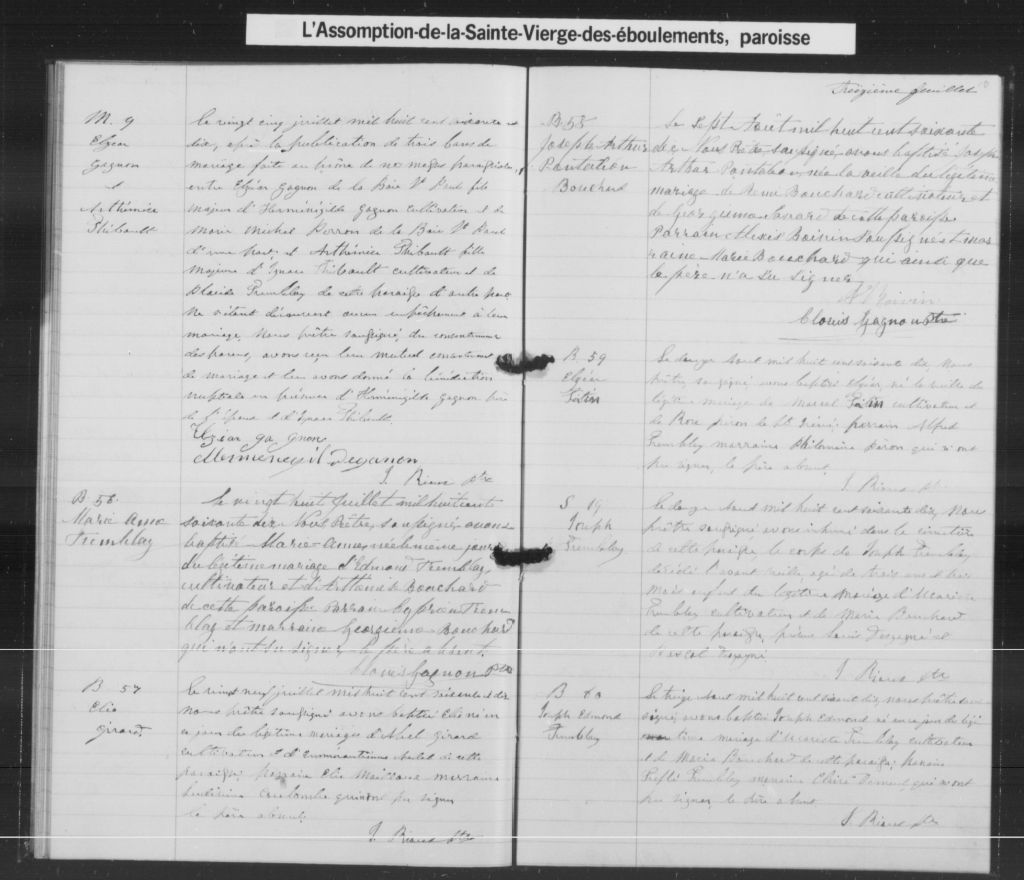 L'Assomption-de-la-Sainte-Vierge-des-éboulements, paroisse
M. 9
Elzéar
Gagnon
et
Arthémise
Thibault
Le vingt cinq juillet mil huit cent soixante et
dix, après la publication de trois bans de
mariage faite au prône de nos messes paroissiales
entre Elzéar Gagnon de la Baie St Paul fils
majeur d'Herménégilde Gagnon cultivateur et de
Marie Michel Perron de la Baie St Paul
d'une part, et Arthémise Thibault fille
majeure d'Ignace Thibault cultivateur et de
Placide Tremblay de cette paroisse d'autre part
Ne s'étant découvert aucun empêchement à leur
mariage, Nous prêtre soussigné, du consentement
des parens, avons reçu leur mutuel consentement
de mariage et leur avons donné la bénédiction
nuptiale en présence d'Herménégilde Gagnon père
de l'époux et d'Ignace Thibault.
Elzéar ga gnon
B 56
Marie Anne
Tremblay
Le vingt huit Juillet mil huit cent
soixante dix Nous Prêtre soussigné avons
baptisé Marie-Anne, née le même jour
du légitime mariage d'Edmond Tremblay,
cultivateur et d' Bouchard
de cette paroisse. Parrain Cyprien Trem
blay et marraine Georgina Bouchard
qui n'ont su signer le père absent.
Clovis Gagnon Ptre
B 57
Elie
Girard
Le vingt neuf juillet mil huit cent soixante et dix
nous prêtre soussigné avons baptisé Elie né en
ce jour du légitime mariage d'Abel Girard
cultivateur et d' de cette
paroisse, parrain Elie marraine
qui n'ont pu signer
le père absent.
Ptre
Treizième feuillet
B 58
Joseph Arthur
Pantaléon
Bouchard
Le Sept Août mil huit cent soixante
dix Nous Ptre soussigné avons baptisé Joseph
Arthur Pantaléon né la veille du légitime
mariage de Rémi Bouchard cultivateur et
de Georgina de cette paroisse
Parrain Alexis Boivin soussigné et mar
raine Marie Bouchard qui ainsi que
le père n'a su signer
Boivin
Clovis Gagnon Ptre
B. 59
Elzéar
Le douze Aout mil huit cent soixante dix, Nous
prêtre soussigné avons baptisé Elzéar, né la veille du
légitime mariage de Marcel cultivateur et
de Rose de St Irénée parrain Alfred
Tremblay marraine Philomène qui n'ont
pu signer, le père absent.
Ptre
S 19
Joseph
Tremblay
Le douze Aout mil huit cent soixante dix, Nous
prêtre soussigné avons inhumé dans le cimetière
de cette paroisse le corps de Joseph Tremblay
décédé l'avant veille, agé de trois ans et
mois enfant du légitime mariage d'
Tremblay cultivateur et de Marie Bouchard
de cette paroisse, présens Louis et
Pascal
Ptre
B 60
Joseph Edmond
Tremblay
Le treize Aout mil huit cent soixante dix, nous prêtre sous
signé, avons baptisé Joseph Edmond né en ce jour du légi
time mariage d' Tremblay cultivateur
et de Marie Bouchard de cette paroisse, Parrain
Tremblay marraine qui n'ont
pu signer, le père absent
Ptre